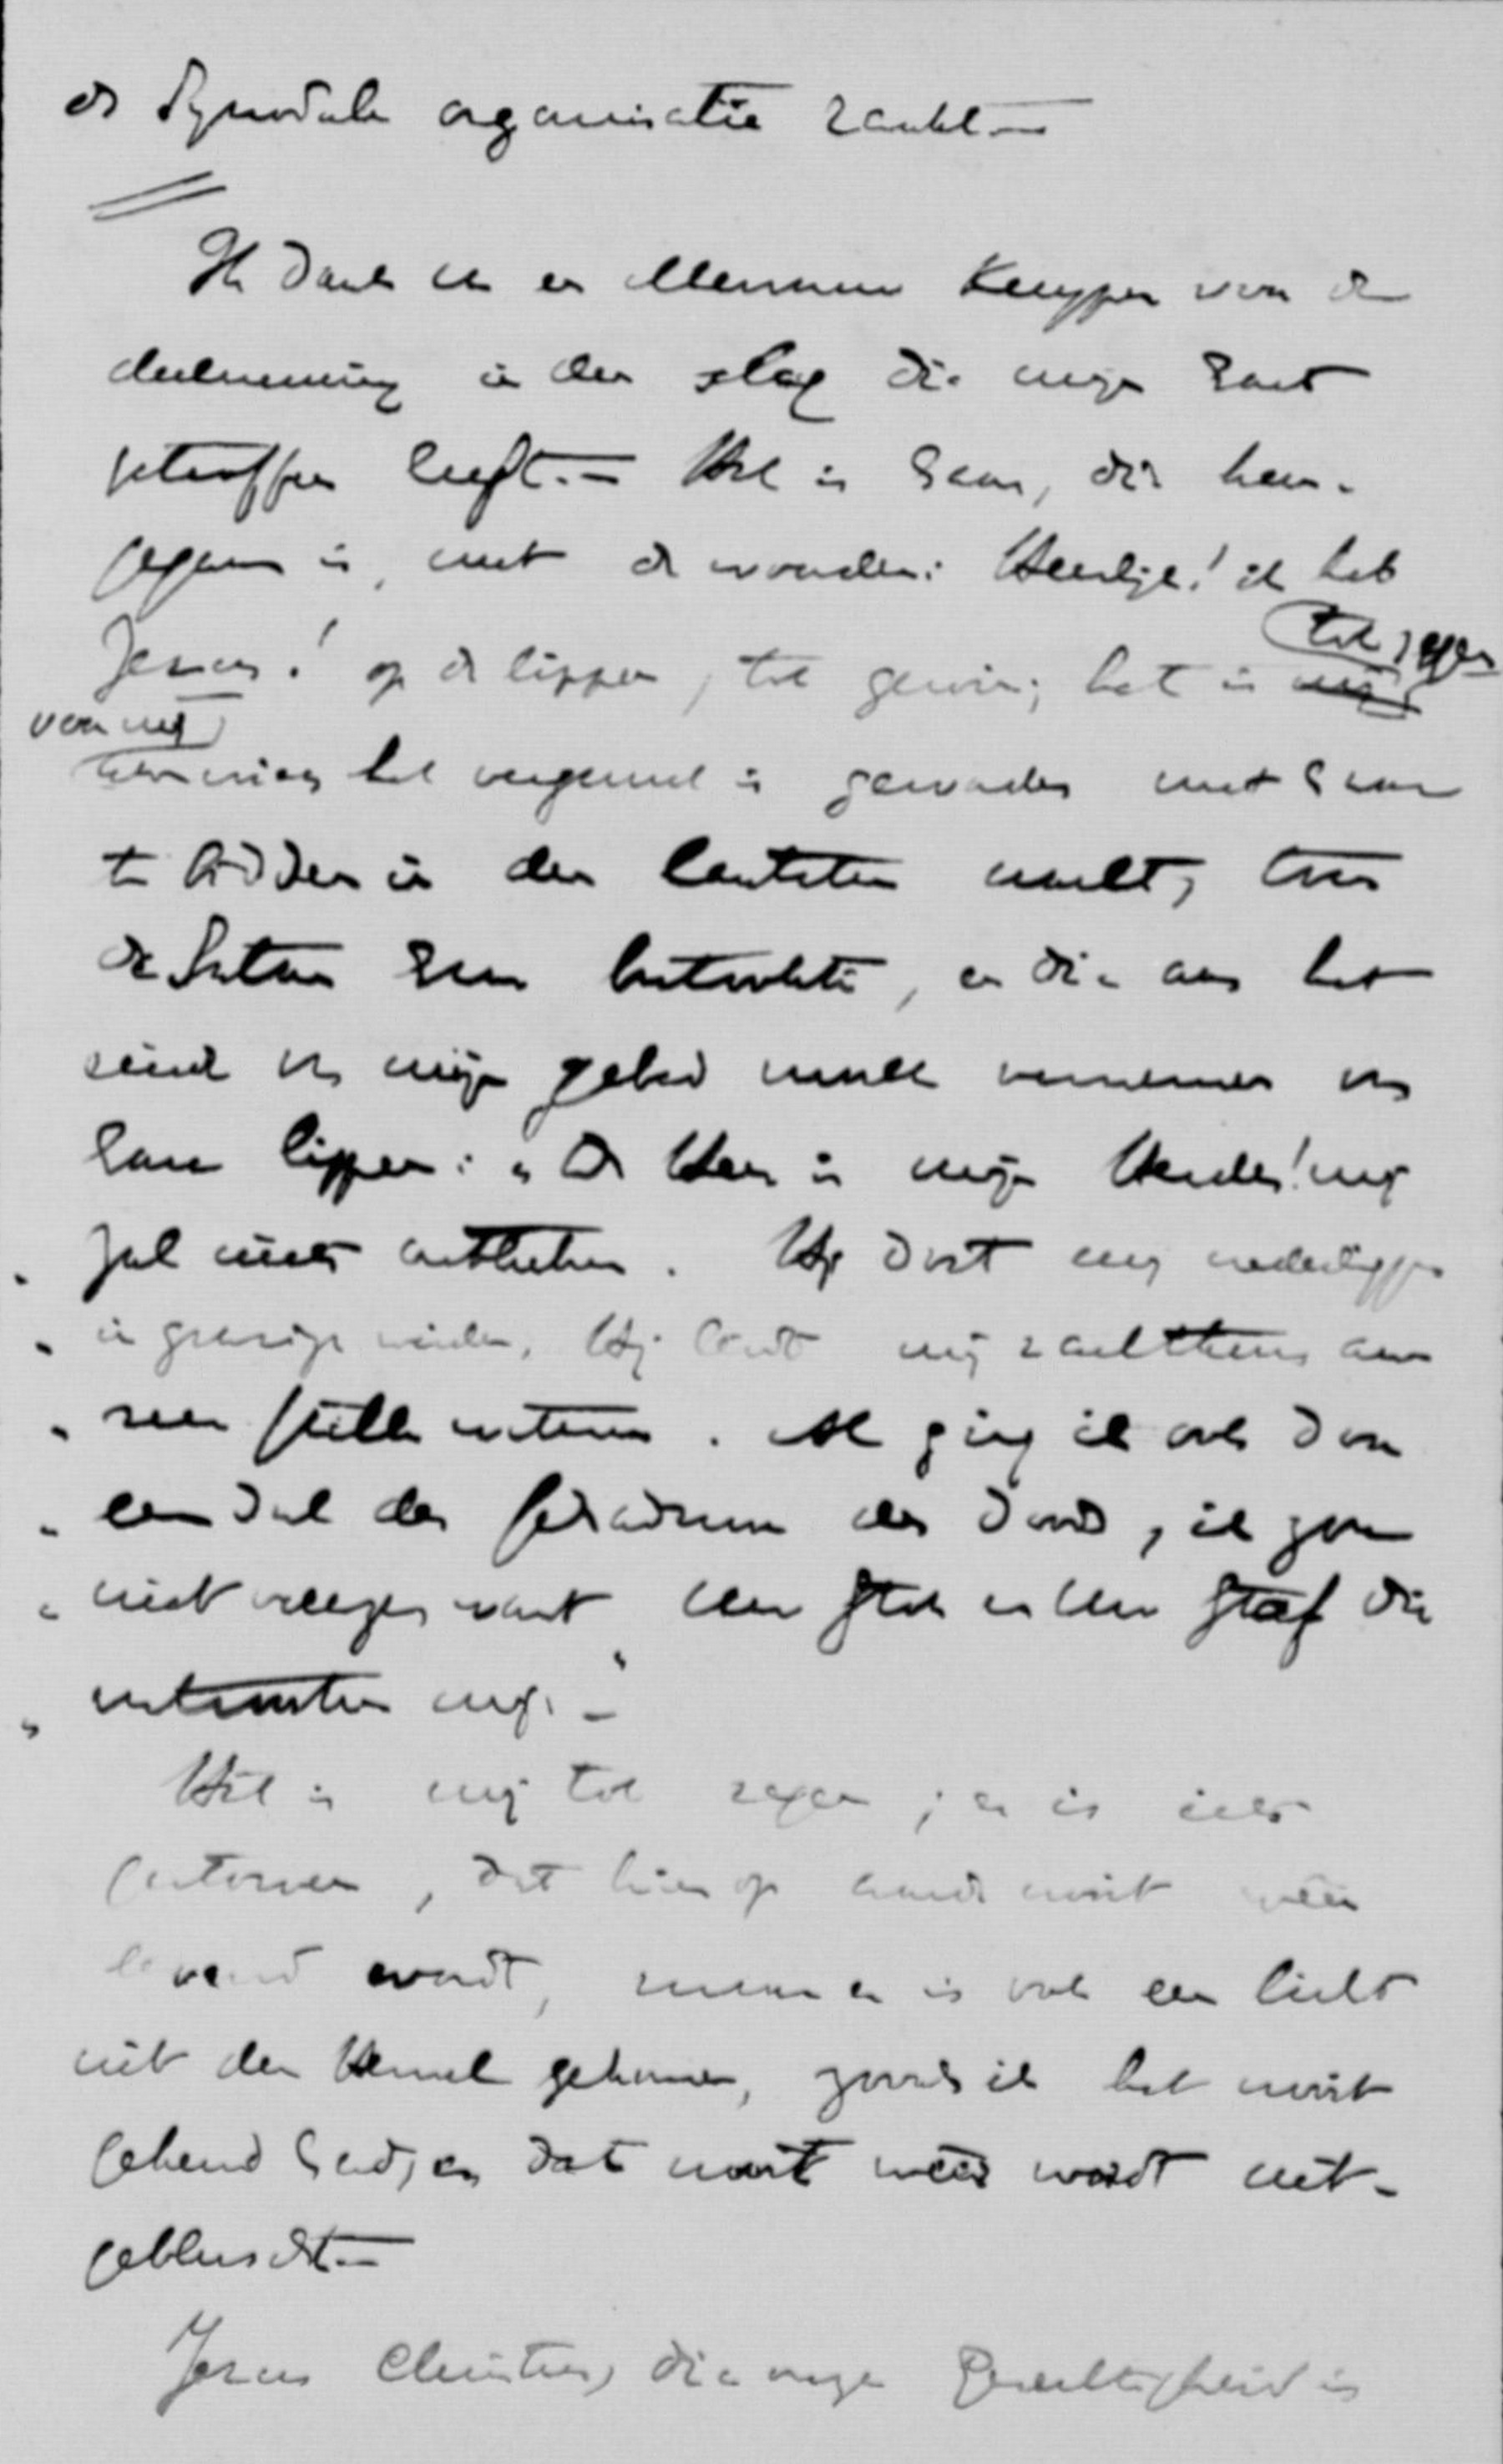 de Synodale organisatie zucht —
Ik dank U en Mevrouw Kuyper voor de
deelneming in den slag die mijn hart
getroffen heeft. — Het is haar, die heen-
gegaan is, met de woorden: Heerlijk! ik heb
Jezus! op de lippen, tot gewin; het is
tot zegen
voor mij
het vergund is geworden met haar
te bidden in den laatsten nacht, toen
de Satan haar benauwde, en die aan het
eind van mijn gebed mocht vernemen van
hare lippen: „De Heer is mijn Herder! mij
„ zal niets ontbreken. Hij doet mij nederliggen
„ in grazige weiden, Hij leidt mij zachtkens aan
„ zeer stille wateren. Al ging ik ook door
„ een dal der schaduwe des doods, ik zou
„ niet vreezen want Uw stok en Uw staf die
„ vertroosten mij." —
Het is mij tot zegen; er is iets
gestorven, dat hier op aarde nooit weêr
levend wordt, maar er is ook een licht
uit den Hemel gekomen, zooals ik het nooit
gekend had, en dat nooit weêr wordt uit-
gebluscht. —
Jezus Christus, die onze Gerechtigheid is